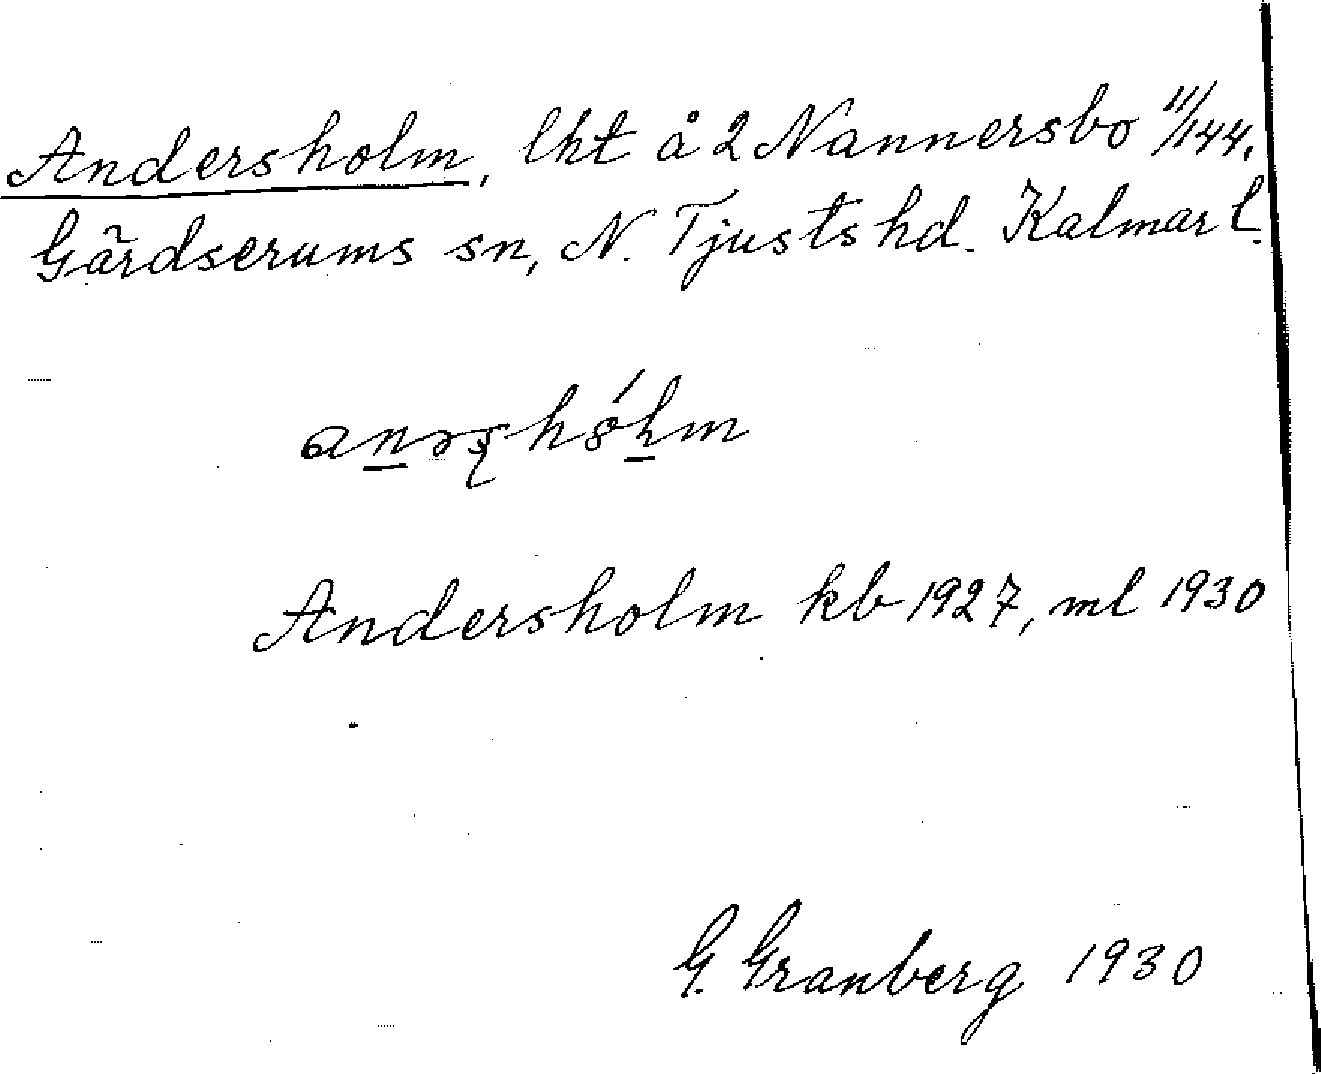 Andersholm, lht å 2 Nannersbo 11/144.
Gärdserums sn, N. Tjusts hd. Kalmar l.
Andersholm kb 1927, ml 1930
G. Granberg 1930